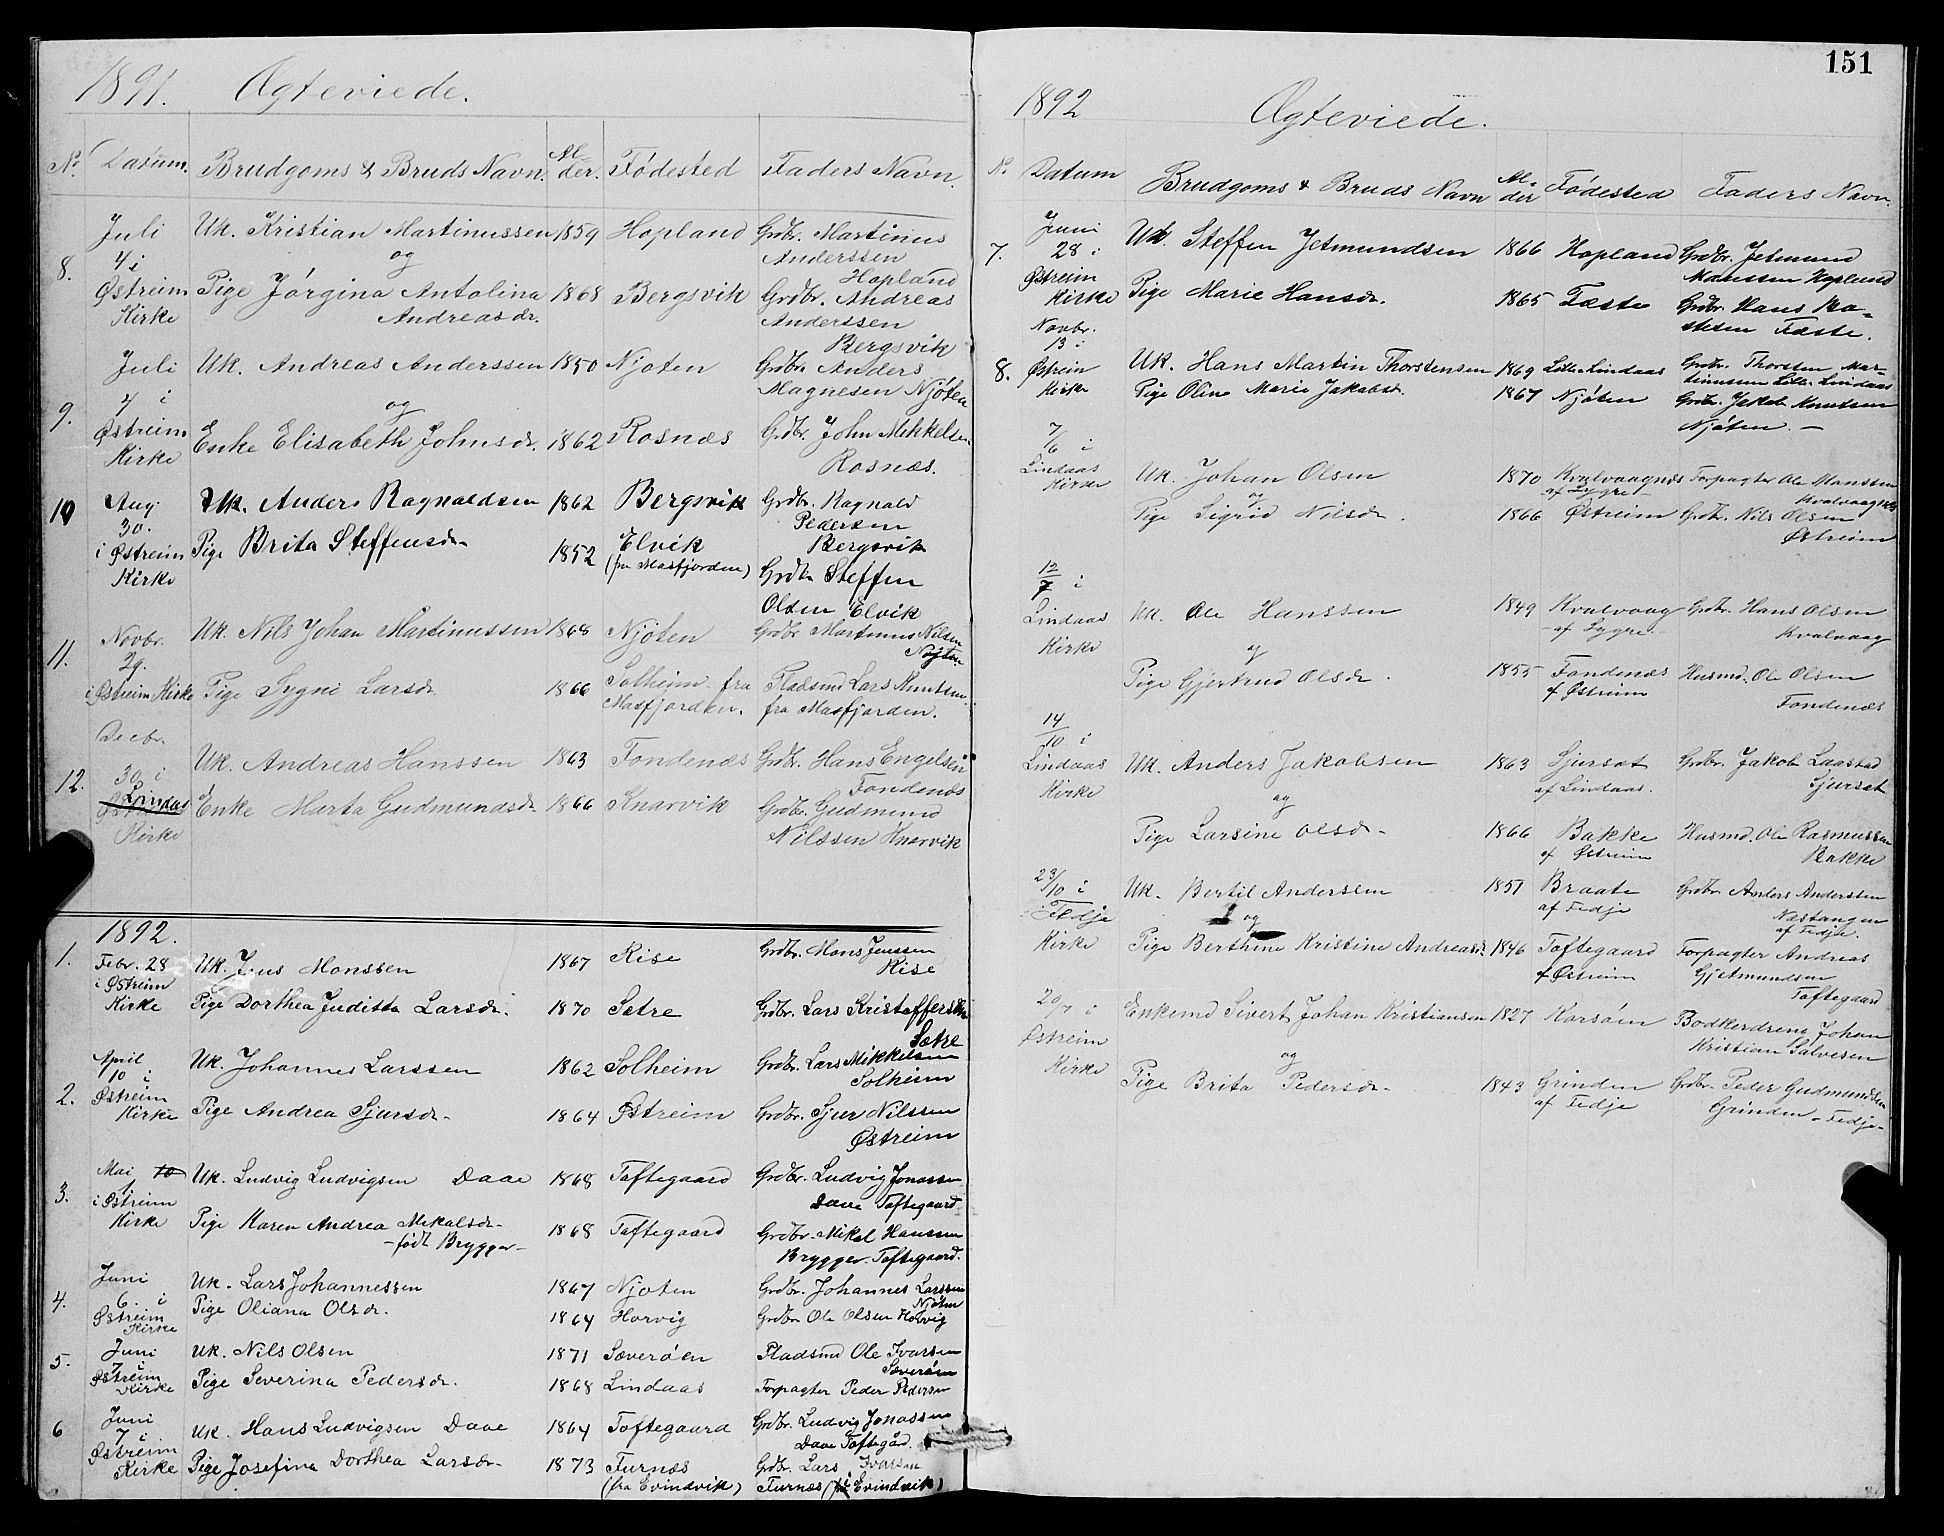 1891. Ægteviede.
No. Datum. Brudgoms & Bruds Navn. Al- der. Fødested Faders Navn.
8. Juli 4 i Østreim Kirke
Uk. Kristian Martinussen 1859 Hopland Grdbr. Martinus Anderssen Hopland
og
Pige Jørgina Antolina Andreasdr. 1868 Bergsvik Grdbr. Andreas Anderssen Bergsvik
9. Juli 4 i Østreim Kirke
Uk. Andreas Anderssen 1850 Njøten Grdbr. Anders Magnesen Njøten
og
Enke Elisabeth Johnsdr. 1862 Rosnæs Grdbr. John Mikkelsen Rosnæs.
10 Aug. 30. i Østreim Kirke
Uk. Anders Ragnaldsen 1862 Bergsvik Grdbr. Ragnald Pedersen Bergsvik
Pige Brita Steffensdr. 1852 Elvik (fra Masfjorden) Grdbr. Steffen Olsen Elvik
11. Novbr. 29. i Østreim Kirke
Uk. Nils Johan Martinussen 1868 Njøten Grdbr. Martinus Nilsen Njøten
Pige Sygni Larsdr. 1866 Solheim fra Masfjorden. Pladsmd Lars Knutsen fra Masfjorden.
12. Decbr. 30 i Lindaas Kirke
Uk. Andreas Hanssen 1863 Fondenæs Grdbr. Hans Engelsen Fondenæs
Enke Marta Gudmundsdr. 1866 Knarvik Grdbr. Gudmund Nilssen Knarvik
1892.
1. Febr. 28 i Østreim Kirke
Uk. Jens Monssen 1867 Rise Grdbr. Mons Jenssen Rise
Pige Dorthea Juditta Larsdr. 1870 Sætre Grdbr. Lars Kristoffersen Sætre
2. April 10 i Østreim Kirke
Uk. Johannes Larssen 1862 Solheim Grdbr. Lars Mikkelsen Solheim
Pige Andrea Sjursdr. 1864 Østreim Grdbr. Sjur Nilssen Østreim
3. Mai 1 i Østreim Kirke
Uk. Ludvig Ludvigsen Daae 1868 Toftegaard Grdbr. Ludvig Jonassen Daae Toftegaard
Pige Karen Andrea Mikalsdr. - født Brygger - 1868 Toftegaard Grdbr. Mikal Hanssen Brygger. Toftegaard.
4. Juni 6. i Østreim Kirke
Uk. Lars Johannessen 1867 Njøten Grdbr. Johannes Larssen Njøten
Pige Oliana Olsdr. 1864 Horvig Grdbr. Ole Olsen Horvig
5. Juni 7 i Østreim Kirke
Uk. Nils Olsen 1871 Sæverøen Pladsmd Ole Ivarsen Sæverøen
Pige Severina Pedersdr. 1868 Lindaas Forpagter Peder Pedersen
6 Juni 7 i Østreim Kirke
Uk. Hans Ludvigsen Daae 1864 Toftegaard Grdbr. Ludvig Jonassen Daae Toftegård.
Pige Josefina Dorthea Larsdr. 1873 Furnæs (fra Evindvik) Grdbr. Lars Ivarsen Furnæs (i Evindvik)
151
1892 Ægteviede.
No. Datum Brudgoms & Bruds Navn Al- der Fødested Faders Navn.
7. Juni 28 i Østreim Kirke
Uk. Steffen Jetmundsen 1866 Hopland Grdbr. Jetmund Monssen Hopland
Pige Marie Hansdr. 1865 Fæste Grdbr. Hans Ra- stesen Fæste.
8. Novbr. 13 i Østreim Kirke
Uk. Hans Martin Thorstensen 1869 Lille Lindaas Grdbr. Thorsten Mar- tinussen Lille Lindaas
Pige Oline Marie Jakobsdr. 1867 Njøten Grdbr. Jakob Knutsen Njøten. -
7/6 i Lindaas Kirke
Uk. Johan Olsen 1870 Kvalvaagnæs af Lygre Forpagter Ole Monssen Kvalvaagnæs
og
Pige Sigrid Nilsdr. 1866 Østreim Grdbr. Nils Olsen Østreim
12/7 i Lindaas Kirke
Uk. Ole Hanssen 1849 Kvalvaag - af Lygre - Grdbr. Hans Olsen Kvalvaag
og
Pige Gjertrud Olsdr. 1855 Fondenæs af Østreim Husmd. Ole Olsen Fondenæs
14/10 i Lindaas Kirke
Uk. Anders Jakobsen 1863 Sjursæt af Lindaas. Grdbr. Jakob Laastad Sjursæt
og
Pige Larsine Olsdr. 1866 Bakke af Østreim Husmd. Ole Rasmussen Bakke
23/10 i Fedje Kirke
Uk. Bertil Andersen 1851 Braate af Fedje Grdbr. Anders Anderssen Nastangen af Fedje.
og
Pige Berthine Kristine Andreasdr. 1846 Toftegaard af Østreim Forpagter Andreas Gjetmundsen Toftegaard
20/7 i Østreim Kirke
Enkemd Sivert Johan Kristiansen 1827 Korsøen Bodkerdreng Johan Kristian Salvesen
og
Pige Brita Pedersdr. 1843 Grinden af Fedje Grdbr. Peder Gudmundsen Grinden - Fedje -